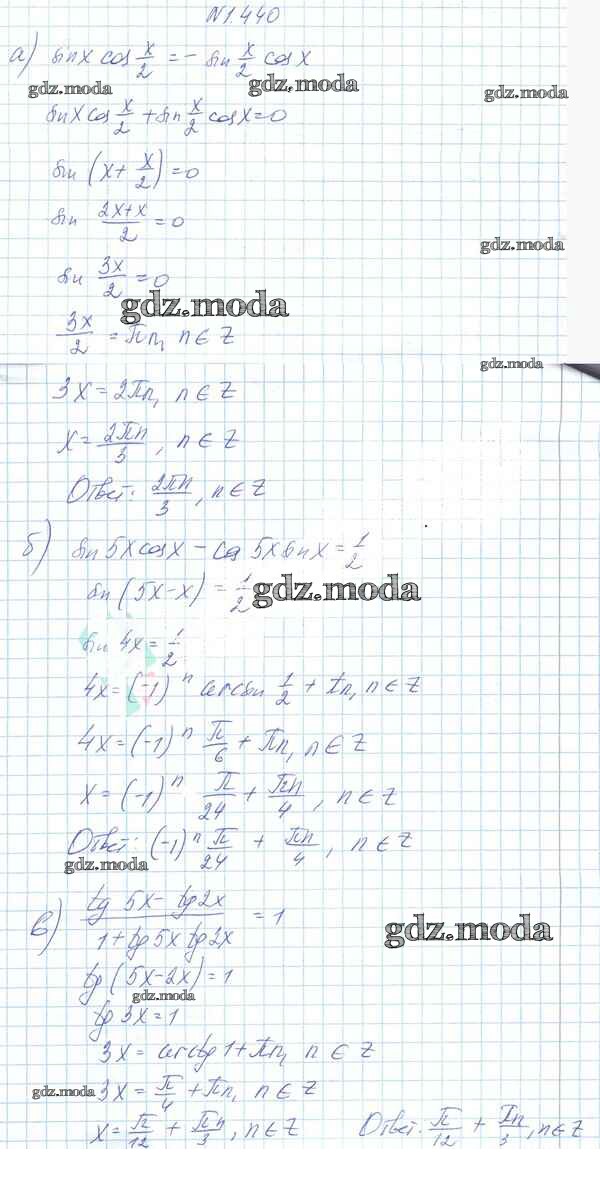 N 1.440
а) sin x cos x/2 = - sin x/2 cos x
gdz.moda gdz.moda gdz.moda
sin x cos x/2 + sin x/2 cos x = 0
sin (x + x/2) = 0
sin 2x+x/2 = 0
gdz.moda
sin 3x/2 = 0
gdz.moda
3x/2 = πn, n ∈ Z
gdz.moda
3x = 2πn, n ∈ Z
x = 2πn/3, n ∈ Z
Ответ: 2πn/3, n ∈ Z
б) sin 5x cos x - cos 5x sin x = 1/2
sin (5x - x) = 1/2 gdz.moda
sin 4x = 1/2
4x = (-1)^n arcsin 1/2 + πn, n ∈ Z
4x = (-1)^n π/6 + πn, n ∈ Z
x = (-1)^n π/24 + πn/4, n ∈ Z
Ответ: (-1)^n π/24 + πn/4, n ∈ Z
gdz.moda
в) tg 5x - tg 2x / 1 + tg 5x tg 2x = 1
gdz.moda
tg (5x - 2x) = 1
gdz.moda
tg 3x = 1
3x = arctg 1 + πn, n ∈ Z
gdz.moda 3x = π/4 + πn, n ∈ Z
x = π/12 + πn/3, n ∈ Z Ответ: π/12 + πn/3, n ∈ Z